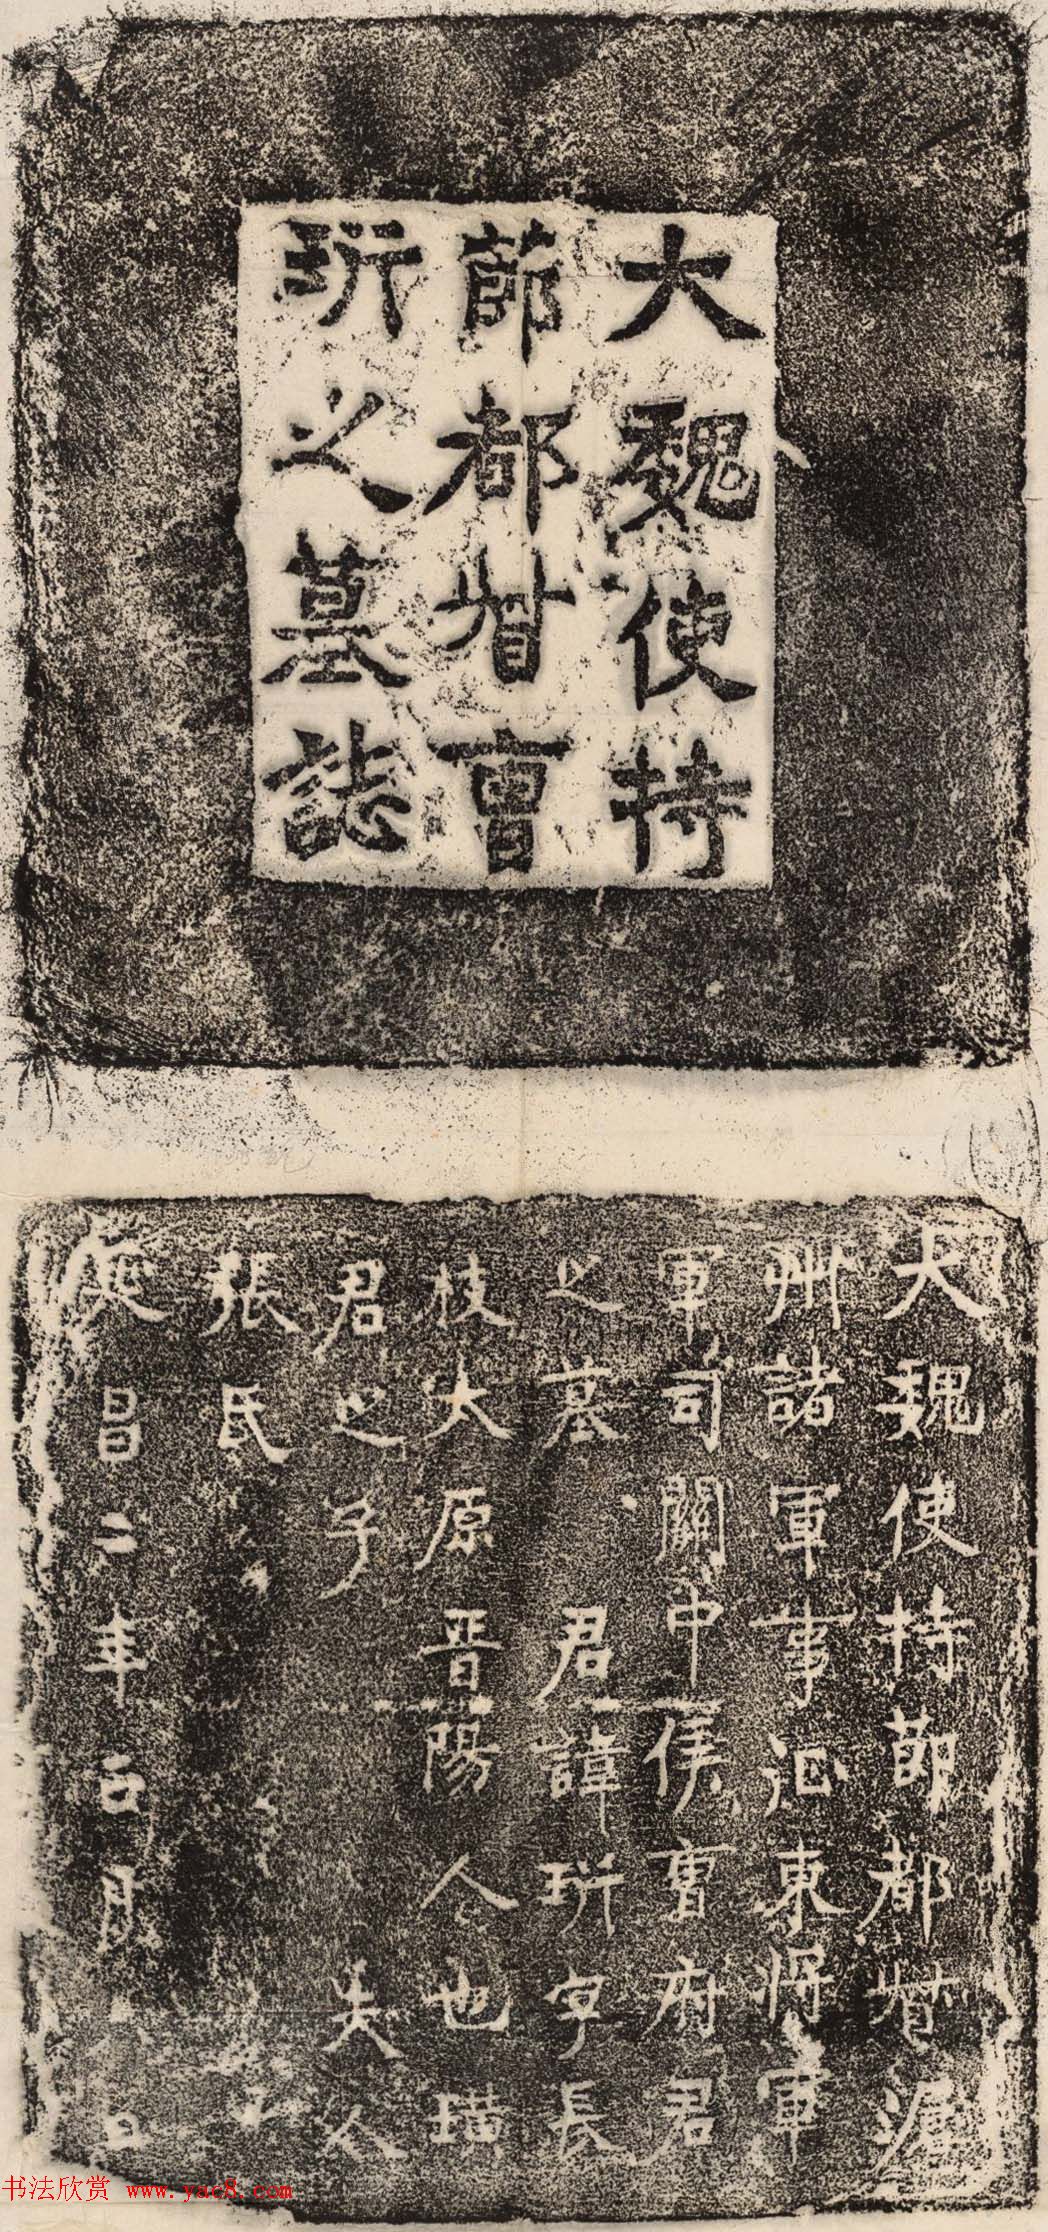 大魏使持
節都督曹
玡之墓誌
大魏使持節都督
州諸軍事征東將軍
軍司關中侯曹府君
之墓 君諱玡字長
枝太原晉陽人也
君之子 夫人
張氏
延昌二年 月 日
书法欣赏 www.yac8.com